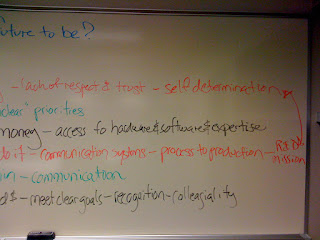 future to be?
- lack of respect & trust - self determination
clear' priorities
money - access to hardware & software & expertise
do it - communication systems - process to production -
mission
- communication
- meet clear goals - recognition - collegiality